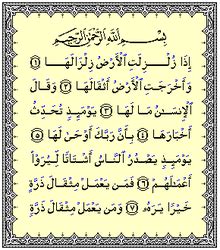 بِسْمِ ٱللَّهِ ٱلرَّحْمَٰنِ ٱلرَّحِيمِ
إِذَا زُلْزِلَتِ ٱلْأَرْضُ زِلْزَالَهَا ١
وَأَخْرَجَتِ ٱلْأَرْضُ أَثْقَالَهَا ٢ وَقَالَ
ٱلْإِنسَٰنُ مَا لَهَا ٣ يَوْمَئِذٍ تُحَدِّثُ
أَخْبَارَهَا ٤ بِأَنَّ رَبَّكَ أَوْحَىٰ لَهَا ٥
يَوْمَئِذٍ يَصْدُرُ ٱلنَّاسُ أَشْتَاتًا لِّيُرَوْا۟
أَعْمَٰلَهُمْ ٦ فَمَن يَعْمَلْ مِثْقَالَ ذَرَّةٍ
خَيْرًا يَرَهُۥ ٧ وَمَن يَعْمَلْ مِثْقَالَ ذَرَّةٍ